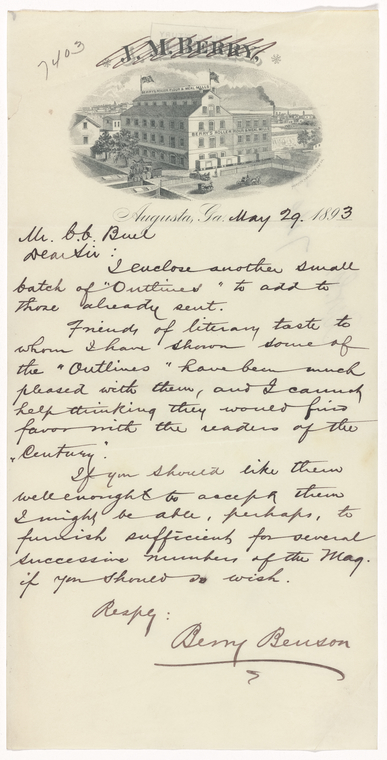 7403
J. M. BERRY,
BERRY'S ROLLER FLOUR & MEAL MILLS
Augusta, Ga. May 29, 1893
Mr. C. C. Buel
Dear Sir:
I enclose another small
batch of "Outlines" to add to
those already sent.
Friends of literary taste to
whom I have shown some of
the "Outlines" have been much
pleased with them, and I cannot
help thinking they would find
favor with the readers of the
"Century".
If you should like them
well enought to accept them
I might be able, perhaps, to
furnish sufficient for several
successive numbers of the Mag.
if you should so wish.
Respy:
Berry Benson